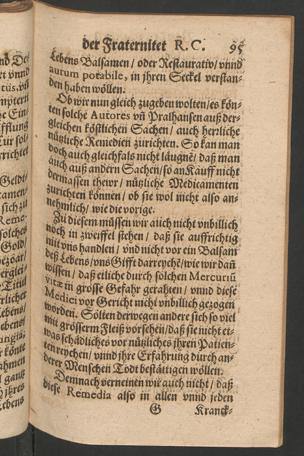 der Fraternitet R. C. 95
Lebens Balsamen / oder Restaurativ / vnnd
aurum potabile, in jhren Seckel verstan-
den haben wöllen.
Ob wir nun gleich zugeben wolten / es kön-
ten solche Autores vñ Pralhansen auß der-
gleichen köstlichen Sachen / auch herrliche
nützliche Remedien zurichten. So kan man
doch auch gleichfals nicht läugnẽ / daß man
auch auß andern Sachen / so an Kauff nicht
dermassen thewr / nützliche Medicamenten
zurichten könten / ob sie wol nicht also an-
nehmlich / wie die vorige.
Zu diesem müssen wir auch nicht vnbillich
noch in zweiffel stehen / daß sie auffrichtig
mit vns handlen / vnd nicht vor ein Balsam
deß Lebens / vns Gifft darreychẽ / wie wir dañ
wissen / daß etliche durch solchen Mercuriũ
vitæ in grosse Gefahr gerahten / vnnd diese
Medici vor Gericht nicht vnbillich gezogen
worden. Solten derwegen andere sich so viel
mit grösserm Fleiß vorsehen / daß sie nicht et-
was schädliches vor nützliches jhren Patien-
ten reychen / vnnd jhre Erfahrung durch an-
derer Menschen Todt bestätigen wöllen.
Demnach verneinen wir auch nicht / daß
diese Remedia also in allen vnnd jeden
G Kranck-